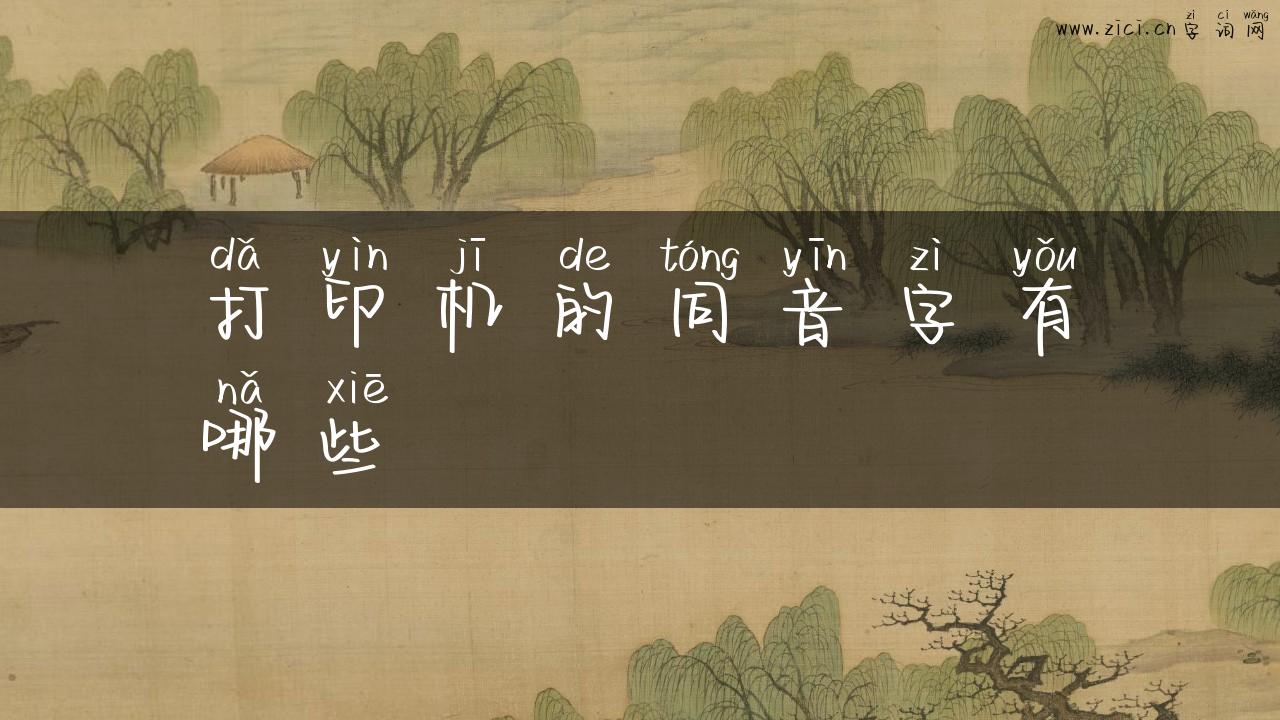 zì cí wǎng
www.zici.cn字词网
dǎ yìn jī de tóng yīn zì yǒu
打印机的同音字有
nǎ xiē
哪些